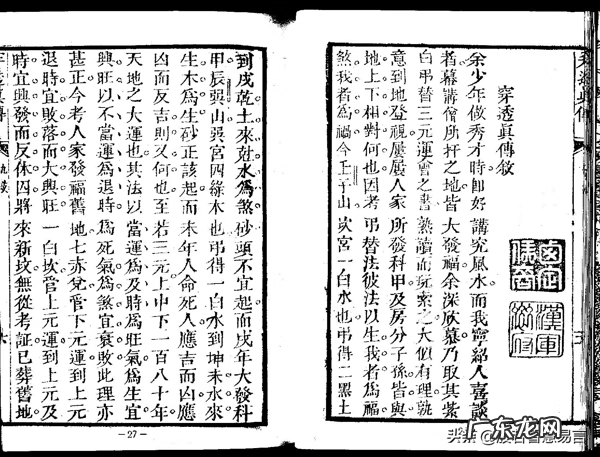 穿透真傳敘
余少年做秀才時即好講究風水而我寧紹人喜談
者幕講僧所扦之地皆大發福余深欣慕乃取其紫
白弔替三元運會之書熟讀而玩索之大似有理孰
意到地登視屢屢人家所發科甲及房分子孫皆與
地上下相對何也因考弔替法彼法以生我者為福
煞我者為禍今壬子山坎宮一白水也弔得二黑土
到戌乾土來尅水為煞砂頭不宜起而戌年大發科
甲辰巽山巽宮四綠木也弔得一白水到坤未水來
生木為生砂正該起而未年人命死人應吉而凶應
凶而反吉則又何也至若三元上中下一百八十年
天地之大運也其法以當運為及時為旺氣為生宜
興旺以不當運為退時為死氣為煞宜衰敗此理亦
甚正今考人家發福舊地七赤兌管下元運到上元
退時宜敗落而大興旺一白坎管上元運到上元
時宜興發而反休囚將來新坟無從考証已葬舊地
—27—
广东龙网